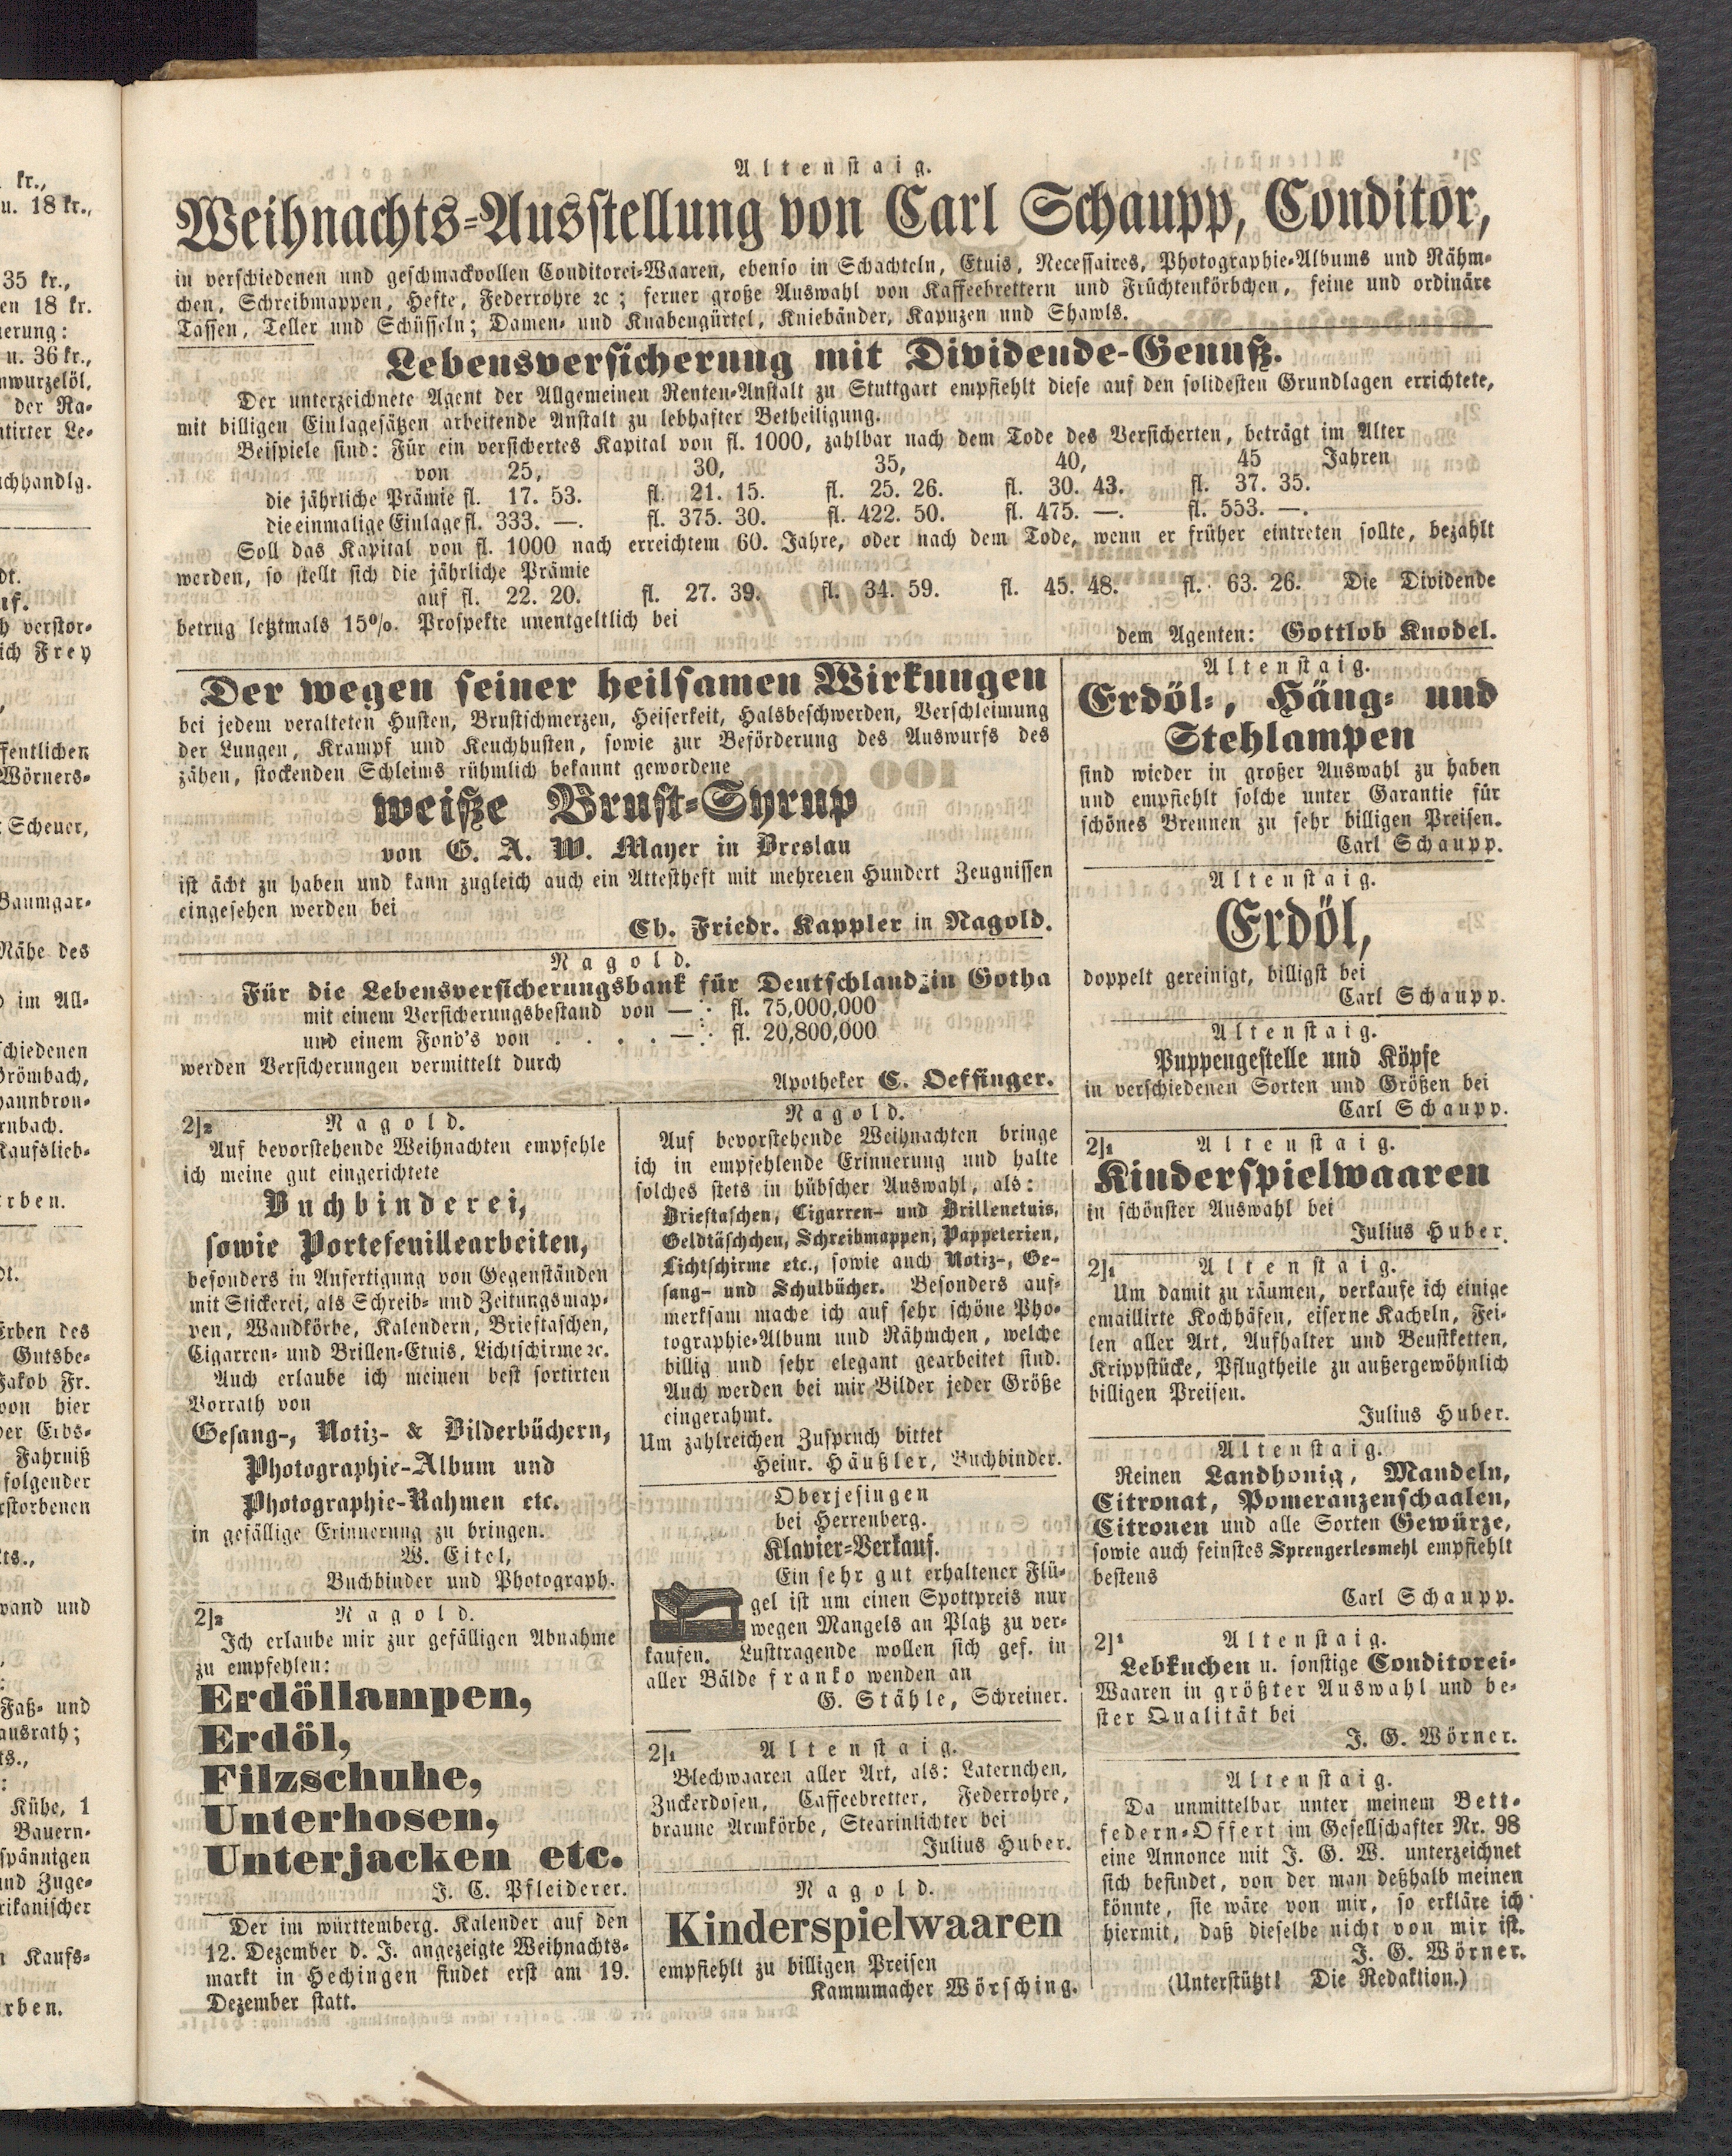 Altenstaig.
Weihnachts-Ausstellung von Carl Schaupp, Conditor,
in verschiedenen und geschmackvollen Conditorei-Waaren, ebenso in Schachteln, Etuis, Necessaires, Photographie-Albums und Rähm-
chen, Schreibmappen, Hefte, Federrohre ꝛc; ferner große Auswahl von Kaffeebrettern und Früchtenkörbchen, feine und ordinäre
Tassen, Teller und Schüsseln; Damen- und Knabengürtel, Kniebänder, Kapuzen und Shawls.
Lebensversicherung mit Dividende-Genuß.
Der unterzeichnete Agent der Allgemeinen Renten-Anstalt zu Stuttgart empfiehlt diese auf den solidesten Grundlagen errichtete,
mit billigen Einlagesätzen arbeitende Anstalt zu lebhafter Betheiligung.
Beispiele sind: Für ein versichertes Kapital von fl. 1000, zahlbar nach dem Tode des Versicherten, beträgt im Alter
von 25, 30, 35, 40, 45 Jahren
die jährliche Prämie fl. 17. 53. fl. 21. 15. fl. 25. 26. fl. 30. 43. fl. 37. 35.
die einmalige Einlage fl. 333. —. fl. 375. 30. fl. 422. 50. fl. 475. —. fl. 553. —.
Soll das Kapital von fl. 1000 nach erreichtem 60. Jahre, oder nach dem Tode, wenn er früher eintreten sollte, bezahlt
werden, so stellt sich die jährliche Prämie
auf fl. 22. 20. fl. 27. 39. fl. 34. 59. fl. 45. 48. fl. 63. 26. Die Dividende
betrug letztmals 15%. Prospekte unentgeltlich bei
dem Agenten: Gottlob Knodel.
Der wegen seiner heilsamen Wirkungen
bei jedem veralteten Husten, Brustschmerzen, Heiserkeit, Halsbeschwerden, Verschleimung
der Lungen, Krampf und Keuchhusten, sowie zur Beförderung des Auswurfs des
zähen, stockenden Schleims rühmlich bekannt gewordene
weiße Brust-Syrup
von G. A. W. Mayer in Breslau
ist ächt zu haben und kann zugleich auch ein Attestheft mit mehreren Hundert Zeugnissen
eingesehen werden bei
Ch. Friedr. Kappler in Nagold.
Nagold.
Für die Lebensversicherungsbank für Deutschland in Gotha
mit einem Versicherungsbestand von —: fl. 75,000,000
und einem Fond's von . . . . —: fl. 20,800,000
werden Versicherungen vermittelt durch
Apotheker C. Oeffinger.
2]2 Nagold.
Auf bevorstehende Weihnachten empfehle
ich meine gut eingerichtete
Buchbinderei,
sowie Portefeuillearbeiten,
besonders in Anfertigung von Gegenständen
mit Stickerei, als Schreib- und Zeitungsmap-
pen, Wandkörbe, Kalendern, Brieftaschen,
Cigarren- und Brillen-Etuis, Lichtschirme ꝛc.
Auch erlaube ich meinen best sortirten
Vorrath von
Gesang-, Notiz- & Bilderbüchern,
Photographie-Album und
Photographie-Rahmen etc.
in gefällige Erinnerung zu bringen.
W. Eitel,
Buchbinder und Photograph.
2]2 Nagold.
Ich erlaube mir zur gefälligen Abnahme
zu empfehlen:
Erdöllampen,
Erdöl,
Filzschuhe,
Unterhosen,
Unterjacken etc.
J. C. Pfleiderer.
Der im württemberg. Kalender auf den
12. Dezember d. J. angezeigte Weihnachts-
markt in Hechingen findet erst am 19.
Dezember statt.
Nagold.
Auf bevorstehende Weihnachten bringe
ich in empfehlende Erinnerung und halte
solches stets in hübscher Auswahl, als:
Brieftaschen, Cigarren- und Brillenetuis,
Geldtäschchen, Schreibmappen, Pappeterien,
Lichtschirme etc., sowie auch Notiz-, Ge-
sang- und Schulbücher. Besonders auf-
merksam mache ich auf sehr schöne Pho-
tographie-Album und Rähmchen, welche
billig und sehr elegant gearbeitet sind.
Auch werden bei mir Bilder jeder Größe
eingerahmt.
Um zahlreichen Zuspruch bittet
Heinr. Häußler, Buchbinder.
Oberjesingen
bei Herrenberg.
Klavier-Verkauf.
Ein sehr gut erhaltener Flü-
gel ist um einen Spottpreis nur
wegen Mangels an Platz zu ver-
kaufen. Lusttragende wollen sich gef. in
aller Bälde franko wenden an
G. Stähle, Schreiner.
2]1 Altenstaig.
Blechwaaren aller Art, als: Laternchen,
Zuckerdosen, Caffeebretter, Federrohre,
braune Armkörbe, Stearinlichter bei
Julius Huber.
Nagold.
Kinderspielwaaren
empfiehlt zu billigen Preisen
Kammmacher Wörsching.
Altenstaig.
Erdöl-, Häng- und
Stehlampen
sind wieder in großer Auswahl zu haben
und empfiehlt solche unter Garantie für
schönes Brennen zu sehr billigen Preisen.
Carl Schaupp.
Altenstaig.
Erdöl,
doppelt gereinigt, billigst bei
Carl Schaupp.
Altenstaig.
Puppengestelle und Köpfe
in verschiedenen Sorten und Größen bei
Carl Schaupp.
2]1 Altenstaig.
Kinderspielwaaren
in schönster Auswahl bei
Julius Huber.
2]1 Altenstaig.
Um damit zu räumen, verkaufe ich einige
emaillirte Kochhäfen, eiserne Kacheln, Fei-
len aller Art, Aufhalter und Beustketten,
Krippstücke, Pflugtheile zu außergewöhnlich
billigen Preisen.
Julius Huber.
Altenstaig.
Reinen Landhonig, Mandeln,
Citronat, Pomeranzenschaalen,
Citronen und alle Sorten Gewürze,
sowie auch feinstes Sprengerlesmehl empfiehlt
bestens
Carl Schaupp.
2]1 Altenstaig.
Lebkuchen u. sonstige Conditorei-
Waaren in größter Auswahl und be-
ster Qualität bei
J. G. Wörner.
Altenstaig.
Da unmittelbar unter meinem Bett-
federn-Offert im Gesellschafter Nr. 98
eine Annonce mit J. G. W. unterzeichnet
sich befindet, von der man deßhalb meinen
könnte, sie wäre von mir, so erkläre ich
hiermit, daß dieselbe nicht von mir ist.
J. G. Wörner.
(Unterstützt! Die Redaktion.)